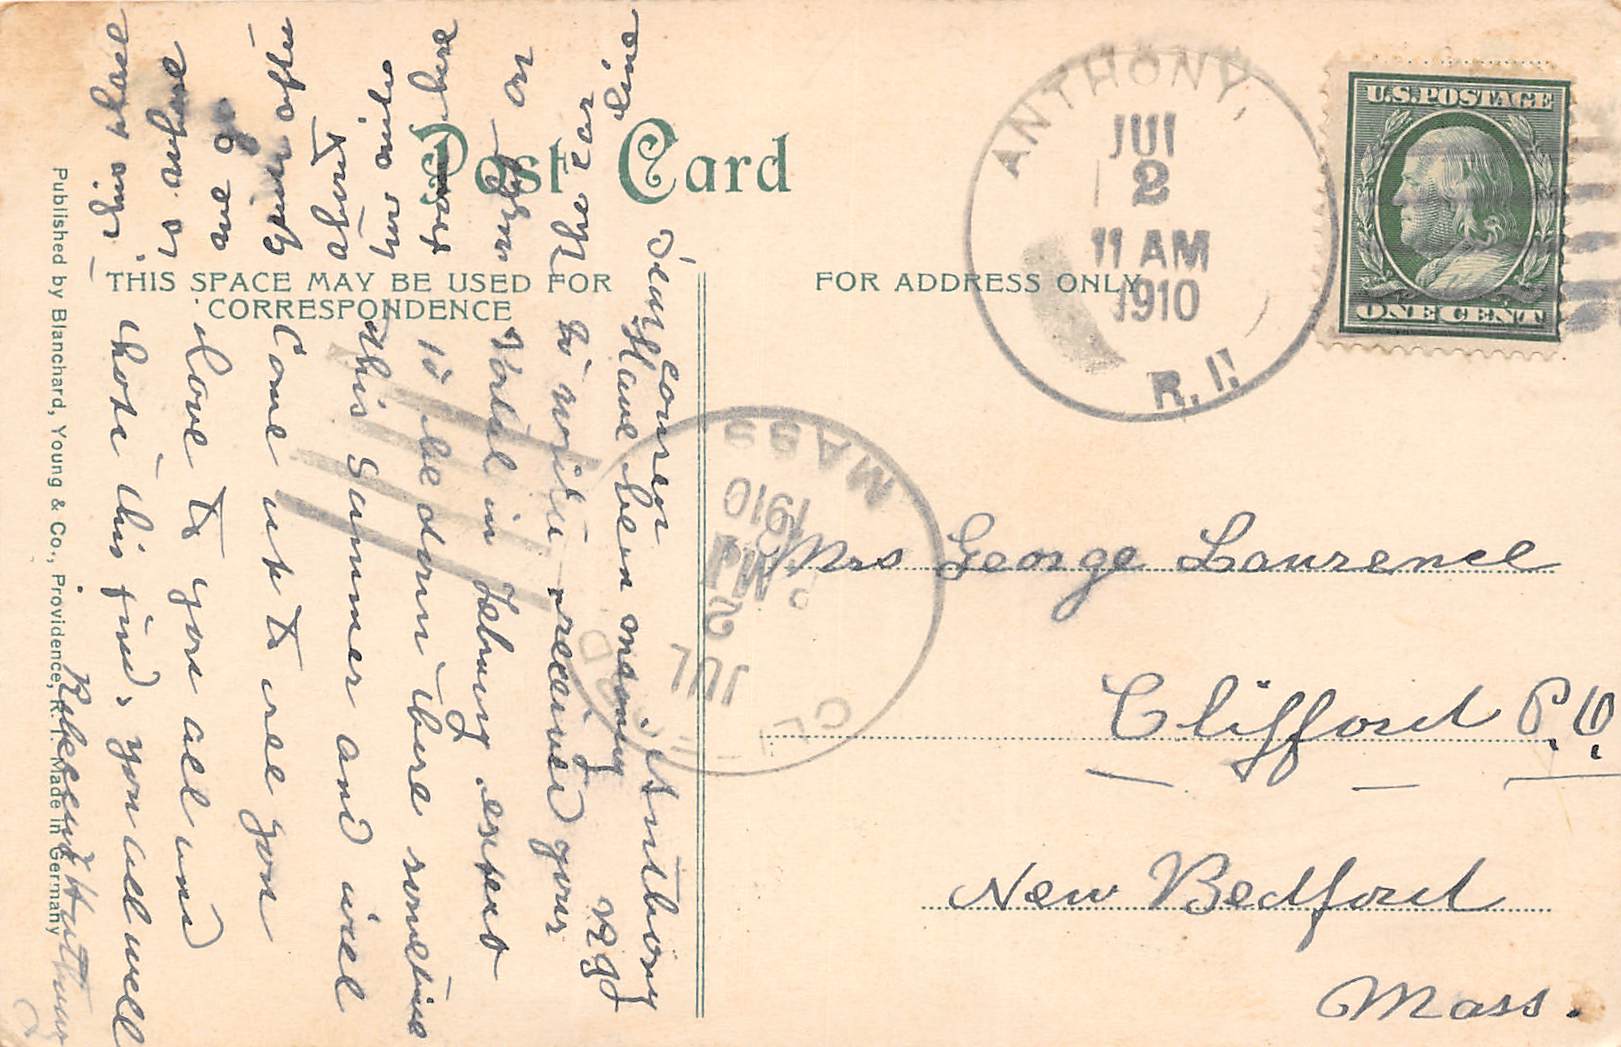 Post Card
THIS SPACE MAY BE USED FOR
CORRESPONDENCE
FOR ADDRESS ONLY
Published by Blanchard, Young & Co., Providence, R. I. Made in Germany
ANTHONY,
JUL
2
11 AM
1910
R.I.
U.S.POSTAGE
ONE CENT
CLIFFORD
JUL
2
PM
1910
MASS
Anthony
Dear cousin
Have been meaning
to write received your
Postal in Febuary expect
to be down there sometime
this Summer and will
Come up to see you
love to you all and
hope this find you all well
Anthony
this place
is where
we go
after
about
two miles
from here
on
the car
line
Mrs George Laurence
Clifford P.O.
New Bedford
Mass.